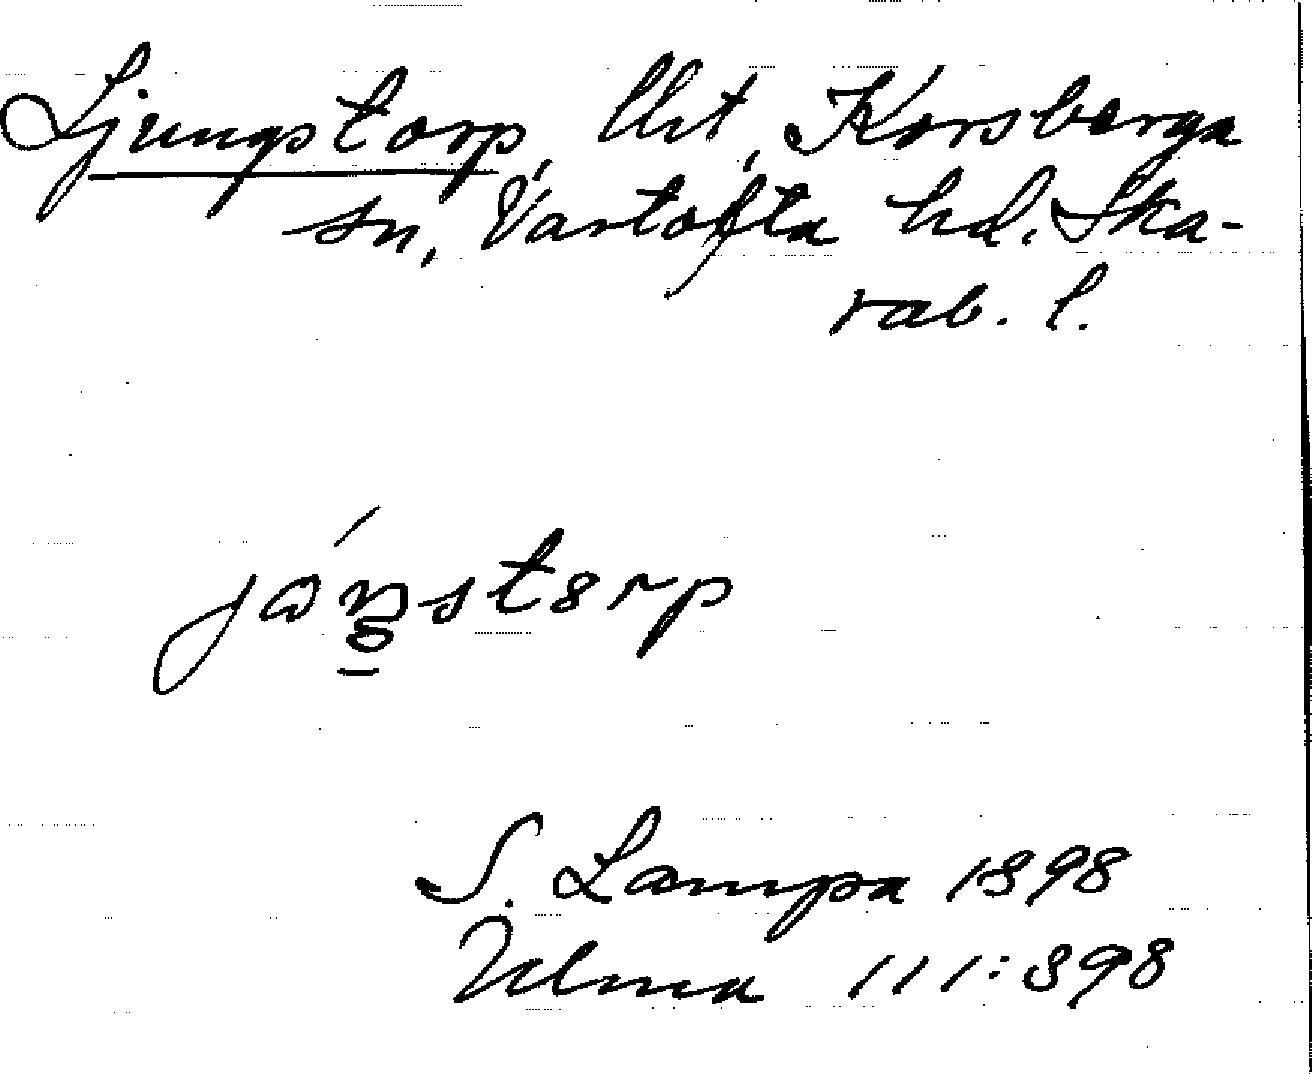 Ljungstorp, lht, Korsberga
sn, Vartofta hd. Ska-
rab. l.
S. Lampa 1898
Ulma 111:398